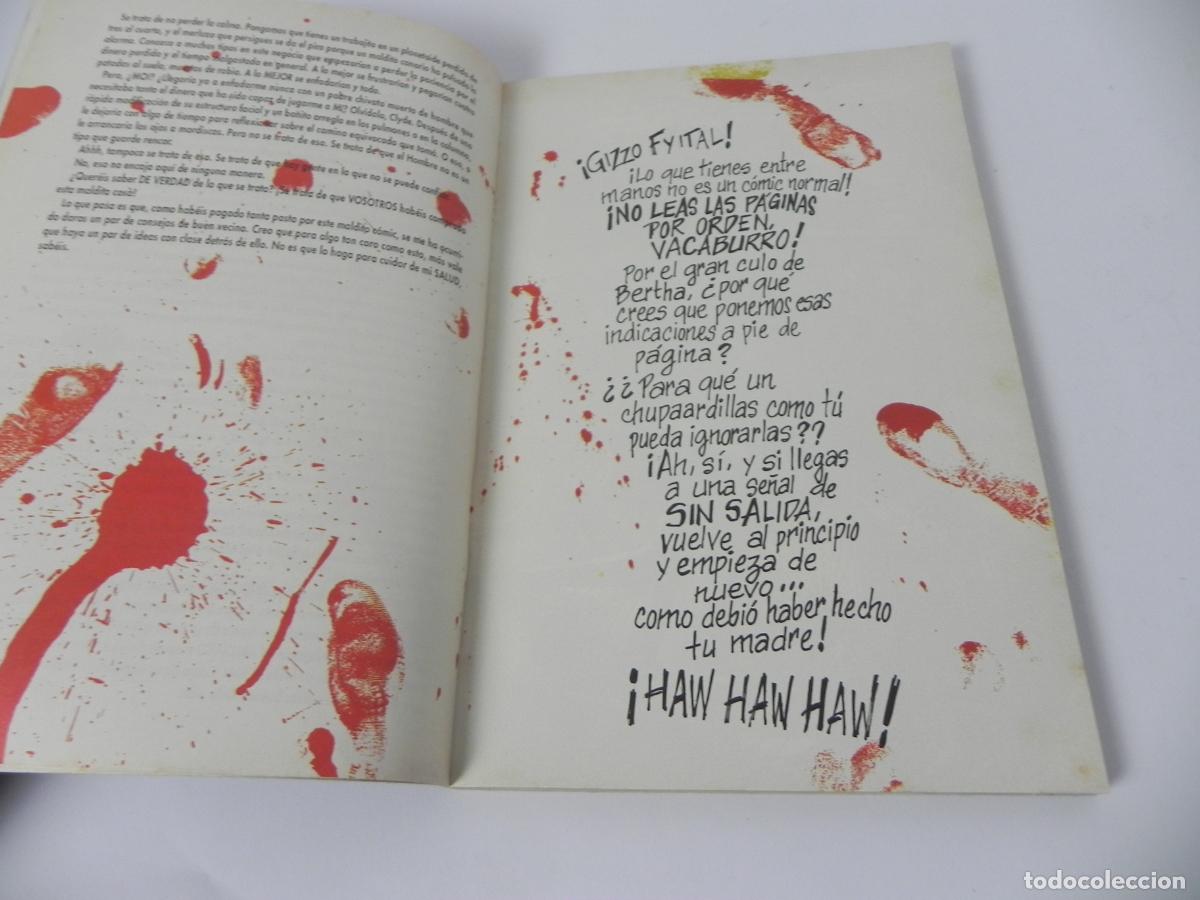 Se trata de no perder la calma. Pongamos que tienes un trabajito en un planetoide perdido de
tres al cuarto, y el merluzo que persigues se da el piro porque un maldito canario ha pulsado la
alarma. Conozco a muchos tipos en este negocio que empezarían a perder la paciencia por el
dinero perdido y el tiempo malgastado en general. A lo mejor se frustrarían y pegarían cuatro
patadas al suelo, muertos de rabia. A lo MEJOR se enfadarían y todo.
Pero, ¿MOI? ¿Llegaría yo a enfadarme nunca con un pobre chivato muerto de hombre que
necesitaba tanto el dinero que ha sido capaz de jugarme a MÍ? Olvídalo, Clyde. Después de una
rápida modificación de su estructura facial y un bañito arregla en los pulmones o en la columna,
le dejaría con algo de tiempo para reflexionar sobre el camino equivocado que tomó. O eso, o
le arrancaría los ojos a mordiscos. Pero no se trata de eso. Se trata de que el Hombre no es un
tipo que guarde rencor.
Ahhh, tampoco se trata de eso. Se trata de que hay gente en la que no se puede confiar.
No, eso no encaja aquí de ninguna manera.
¿Queréis saber DE VERDAD de lo que se trata? ¡Se trata de que VOSOTROS habéis comprado
esta maldita cosa!
Lo que pasa es que, como habéis pagado tanta pasta por este maldito cómic, se me ha ocurri-
do daros un par de consejos de buen vecino. Creo que para algo tan caro como esto, más vale
que haya un par de ideas con clase detrás de ello. No es que lo haga para cuidar de mi SALUD,
sabéis.
¡GIZZO FYITAL!
¡Lo que tienes entre
manos no es un cómic normal!
¡NO LEAS LAS PÁGINAS
POR ORDEN,
VACABURRO!
Por el gran culo de
Bertha, ¿por qué
crees que ponemos esas
indicaciones a pie de
página?
¿¿Para qué un
chupaardillas como tú
pueda ignorarlas??
¡Ah, sí, y si llegas
a una señal de
SIN SALIDA,
vuelve al principio
y empieza de
nuevo...
como debió haber hecho
tu madre!
¡HAW HAW HAW!
todocoleccion